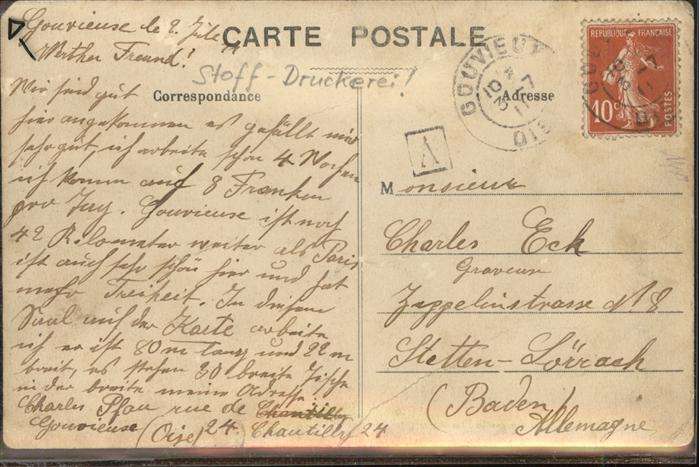 CARTE POSTALE
Stoff-Druckerei!
Correspondance
Adresse
Gouvieuse le 2. Juli 11
Werther Freund!
Wir sind gut
hier angekommen es gefällt mir
sehr gut, ich arbeite schon 4 Wochen
ich komm auf 8 Franken
pro Tag. Gouvieuse ist noch
42 Kilometer weiter als Paris
ist auch sehr schön hier und hat
mehr Freiheit. In diesem
Saal auf der Karte arbeite
ich er ist 80 m lang und 22 m
breit, es stehen 20 breite Tische
in der breite meine Adresse:
Charles Pfau rue de Chantilly
Gouvieuse (Oise) 24 Chantilly 24
GOUVIEUX
OISE
A
REPUBLIQUE FRANÇAISE
10c
POSTES
Monsieur
Charles Eck
Graveur
Zeppelinstrasse N 8
Stetten-Lörrach
(Baden)
Allemagne